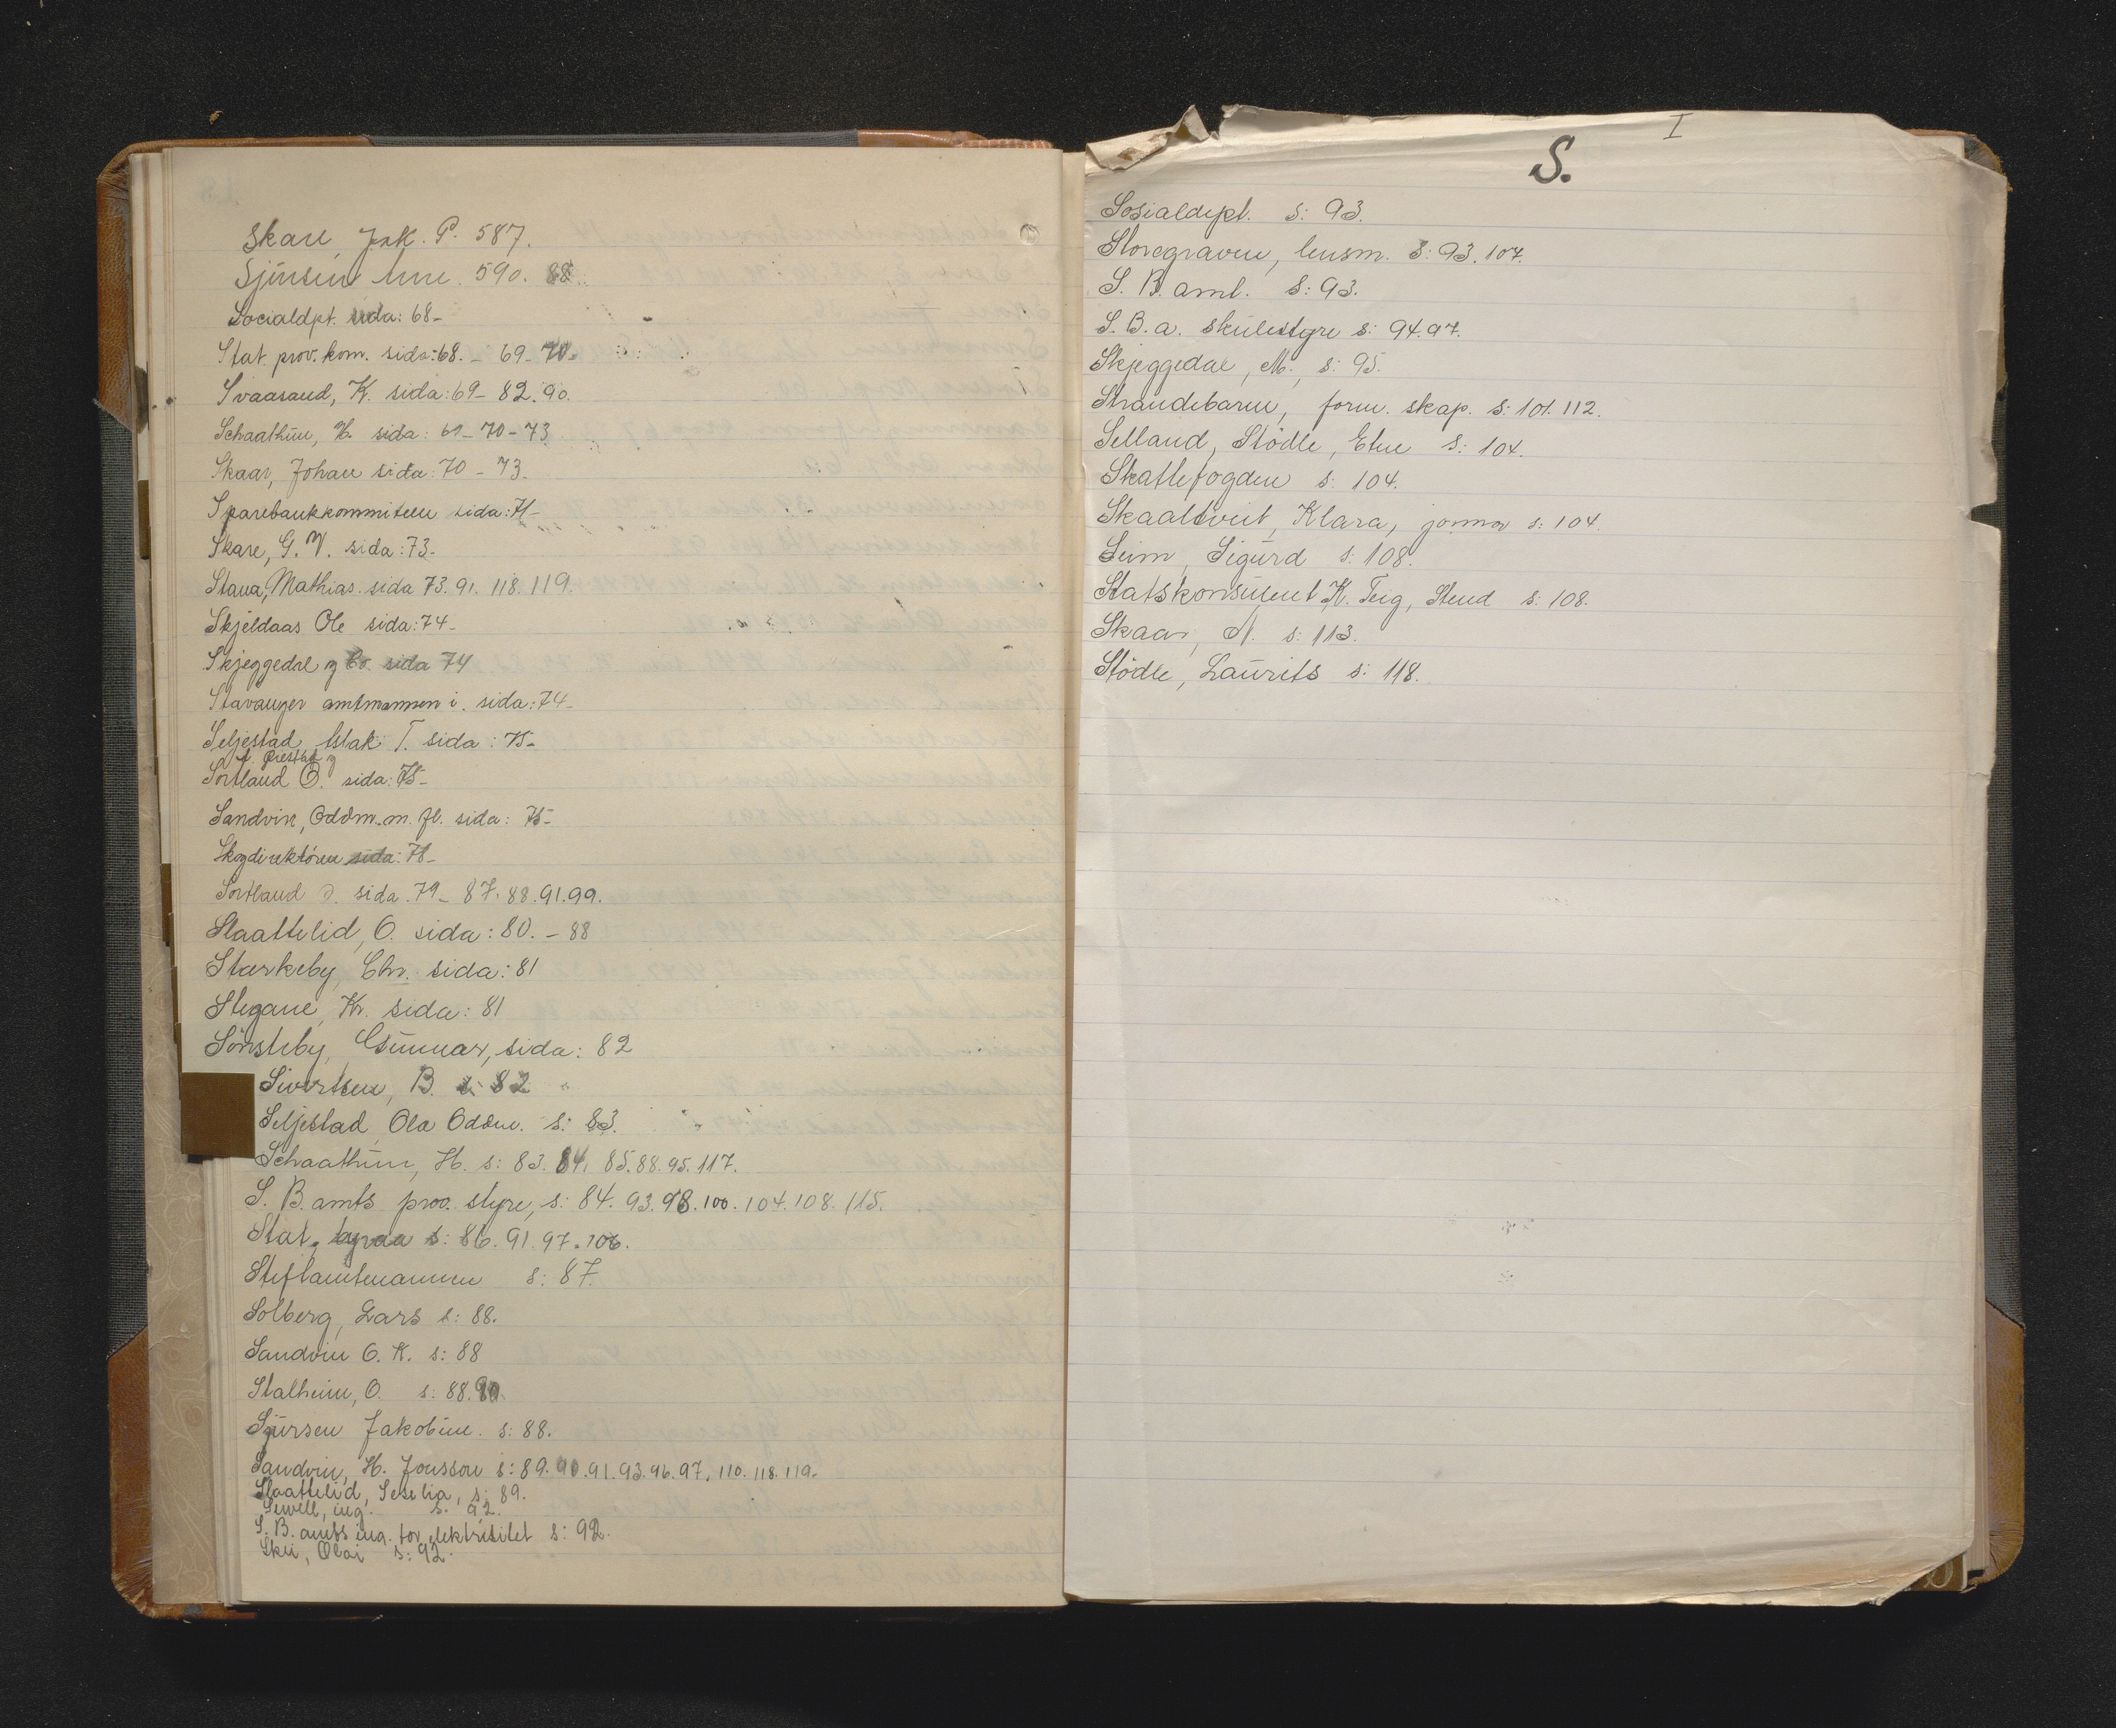 Skare, Jak. P. 587.
Sjursen Ane. 590. 88.
Socialdpt. sida: 68-
Stat. prov. kom. sida: 68. - 69 - 70.
Svaasand, K. sida: 69 - 82. 90.
Schaathun, H. sida: 69 - 70 - 73
Skaar, Johan sida: 70 - 73.
Sparebankkommiteen sida: 71-
Skare, G. V. sida: 73-
Stana, Mathias. sida 73. 91. 118. 119.
Skjeldaas Ole sida: 74-
Skjeggedal og Co. sida 74
Stavanger amtmannen i. sida: 74-
Seljestad, Aslak T. sida: 75-
Sortland O. sida: 75-
Sandvin, Oddm. m. fl. sida: 75-
Skogdirektören sida: 78-
Sortland O. sida. 79 - 87. 88. 91. 99.
Slaattelid, O. sida: 80. - 88
Starkeby, Chr. sida: 81
Stegane, Kr. sida: 81
Sönsteby, Gunnar, sida: 82
Sivertsen, B. s: 82
Seljestad, Ola Oddm. s: 83.
Schaathun, H. s: 83. 84. 85. 88. 95. 117.
S. B. amts prov. styre, s: 84. 93. 98. 100. 104. 108. 115.
Stat. byraa s: 86. 91. 97. 106.
Stiftamtmannen s: 87.
Solberg, Lars s: 88.
Sandvin O. K. s: 88
Stalheim, O. s: 88. 90.
Sjursen Jakobine. s: 88.
Sandvin, H. Jonsson s: 89. 90. 91. 93. 96. 97. 110. 118. 119.
Slaattelid, Seselia, s: 89.
Sewell, ing. s: 92.
S. B. amts ing. for elektrisitet s: 92.
Skei, Olai s: 92.
I
S.
Sosialdept. s: 93.
Storegraven, lensm. s: 93. 107.
S. B. amt. s: 93.
S. B. a. skulestyre s: 94. 97.
Skjeggedal, M., s: 95.
Strandebarm, form. skap. s: 101. 112.
Selland, Stödle, Etne s: 104.
Skattefogden s: 104.
Skaaltveit, Klara, jormor s: 104.
Seim, Sigurd s: 108.
Statskonsulent K. Teig, Stend s: 108.
Skaar, N. s: 113.
Stödle, Laurits s: 118.